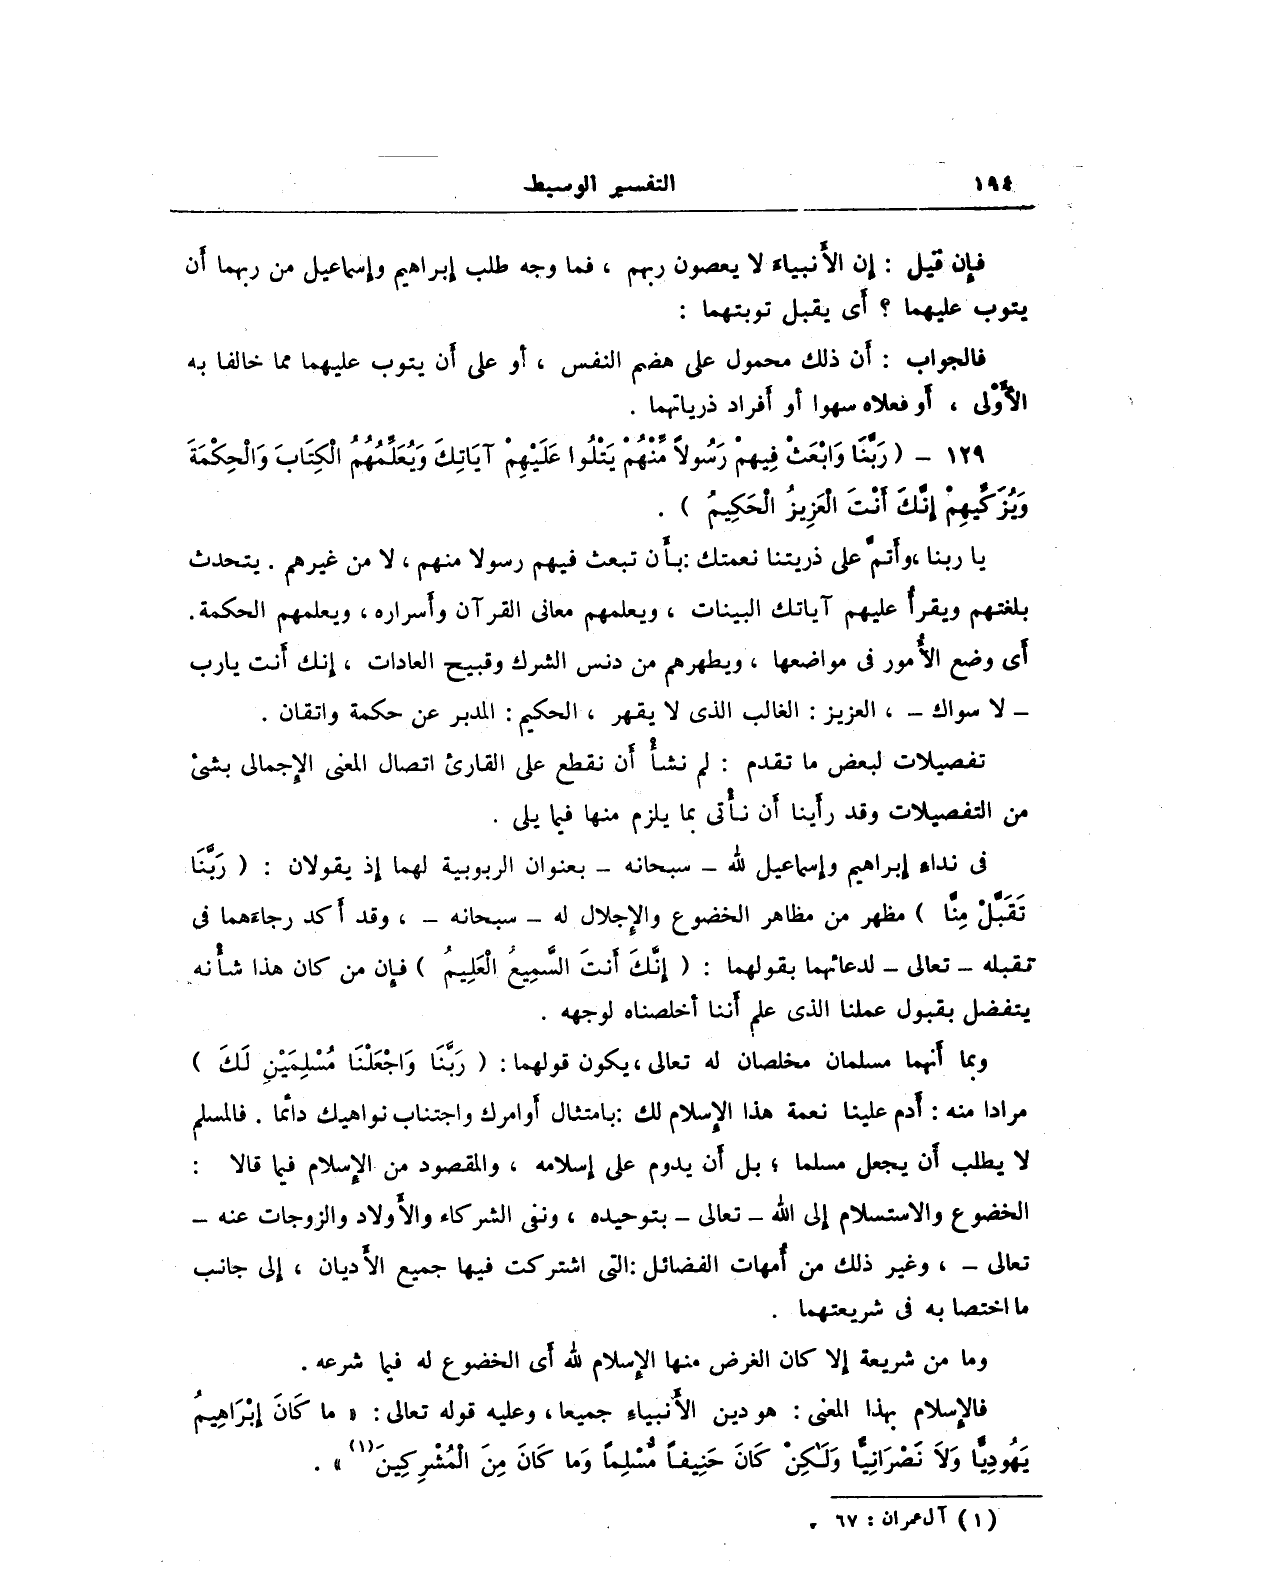 ١٩٤ التفسير الوسيط
فإن قيل : إن الأنبياء لا يعصون ربهم ، فما وجه طلب إبراهيم وإسماعيل من ربهما أن
يتوب عليهما ؟ أى يقبل توبتهما :
فالجواب : أن ذلك محمول على هضم النفس ، أو على أن يتوب عليهما مما خالفا به
الأَوْلى ، أو فعلاه سهوا أو أفراد ذرياتهما .
١٢٩ – ( رَبَّنَا وَابْعَثْ فِيهِمْ رَسُولاً مِّنْهُمْ يَتْلُوا عَلَيْهِمْ آيَاتِكَ وَيُعَلِّمُهُمُ الْكِتَابَ وَالْحِكْمَةَ
وَيُزَكِّيهِمْ إِنَّكَ أَنْتَ الْعَزِيزُ الْحَكِيمُ ) .
يا ربنا ، وأتمَّ على ذريتنا نعمتك : بأن تبعث فيهم رسولا منهم ، لا من غيرهم . يتحدث
بلغتهم ويقرأ عليهم آياتك البينات ، ويعلمهم معانى القرآن وأسراره ، ويعلمهم الحكمة .
أى وضع الأُمور فى مواضعها ، ويطهرهم من دنس الشرك وقبيح العادات ، إنك أنت يارب
– لا سواك – ، العزيز : الغالب الذى لا يقهر ، الحكيم : المدبر عن حكمة واتقان .
تفصيلات لبعض ما تقدم : لم نشأ أن نقطع على القارئ اتصال المعنى الإجمالى بشئ
من التفصيلات وقد رأينا أن نأتى بما يلزم منها فيما يلى .
فى نداء إبراهيم وإسماعيل لله – سبحانه – بعنوان الربوبية لهما إذ يقولان : ( رَبَّنَا
تَقَبَّلْ مِنَّا ) مظهر من مظاهر الخضوع والإجلال له – سبحانه – ، وقد أكد رجاءهما فى
تقبله – تعالى – لدعائهما بقولهما : ( إِنَّكَ أَنتَ السَّمِيعُ الْعَلِيمُ ) فإن من كان هذا شأنه
يتفضل بقبول عملنا الذى علم أننا أخلصناه لوجهه .
وبما أنهما مسلمان مخلصان له تعالى ، يكون قولهما : ( رَبَّنَا وَاجْعَلْنَا مُسْلِمَيْنِ لَكَ )
مرادا منه : أدم علينا نعمة هذا الإسلام لك : بامتثال أوامرك واجتناب نواهيك دائما . فالمسلم
لا يطلب أن يجعل مسلما ؛ بل أن يدوم على إسلامه ، والمقصود من الإسلام فيما قالا :
الخضوع والاستسلام إلى الله – تعالى – بتوحيده ، ونفى الشركاء والأولاد والزوجات عنه –
تعالى – ، وغير ذلك من أُمهات الفضائل : التى اشتركت فيها جميع الأديان ، إلى جانب
ما اختصا به فى شريعتهما .
وما من شريعة إلا كان الغرض منها الإسلام لله أى الخضوع له فيما شرعه .
فالإسلام بهذا المعنى : هو دين الأنبياء جميعا ، وعليه قوله تعالى : « ما كَانَ إِبْرَاهِيمُ
يَهُودِيًّا وَلاَ نَصْرَانِيًّا وَلَٰكِنْ كَانَ حَنِيفاً مُّسْلِماً وَما كَانَ مِنَ الْمُشْرِكِينَ (١) » .
(١) آل عمران : ٦٧ .